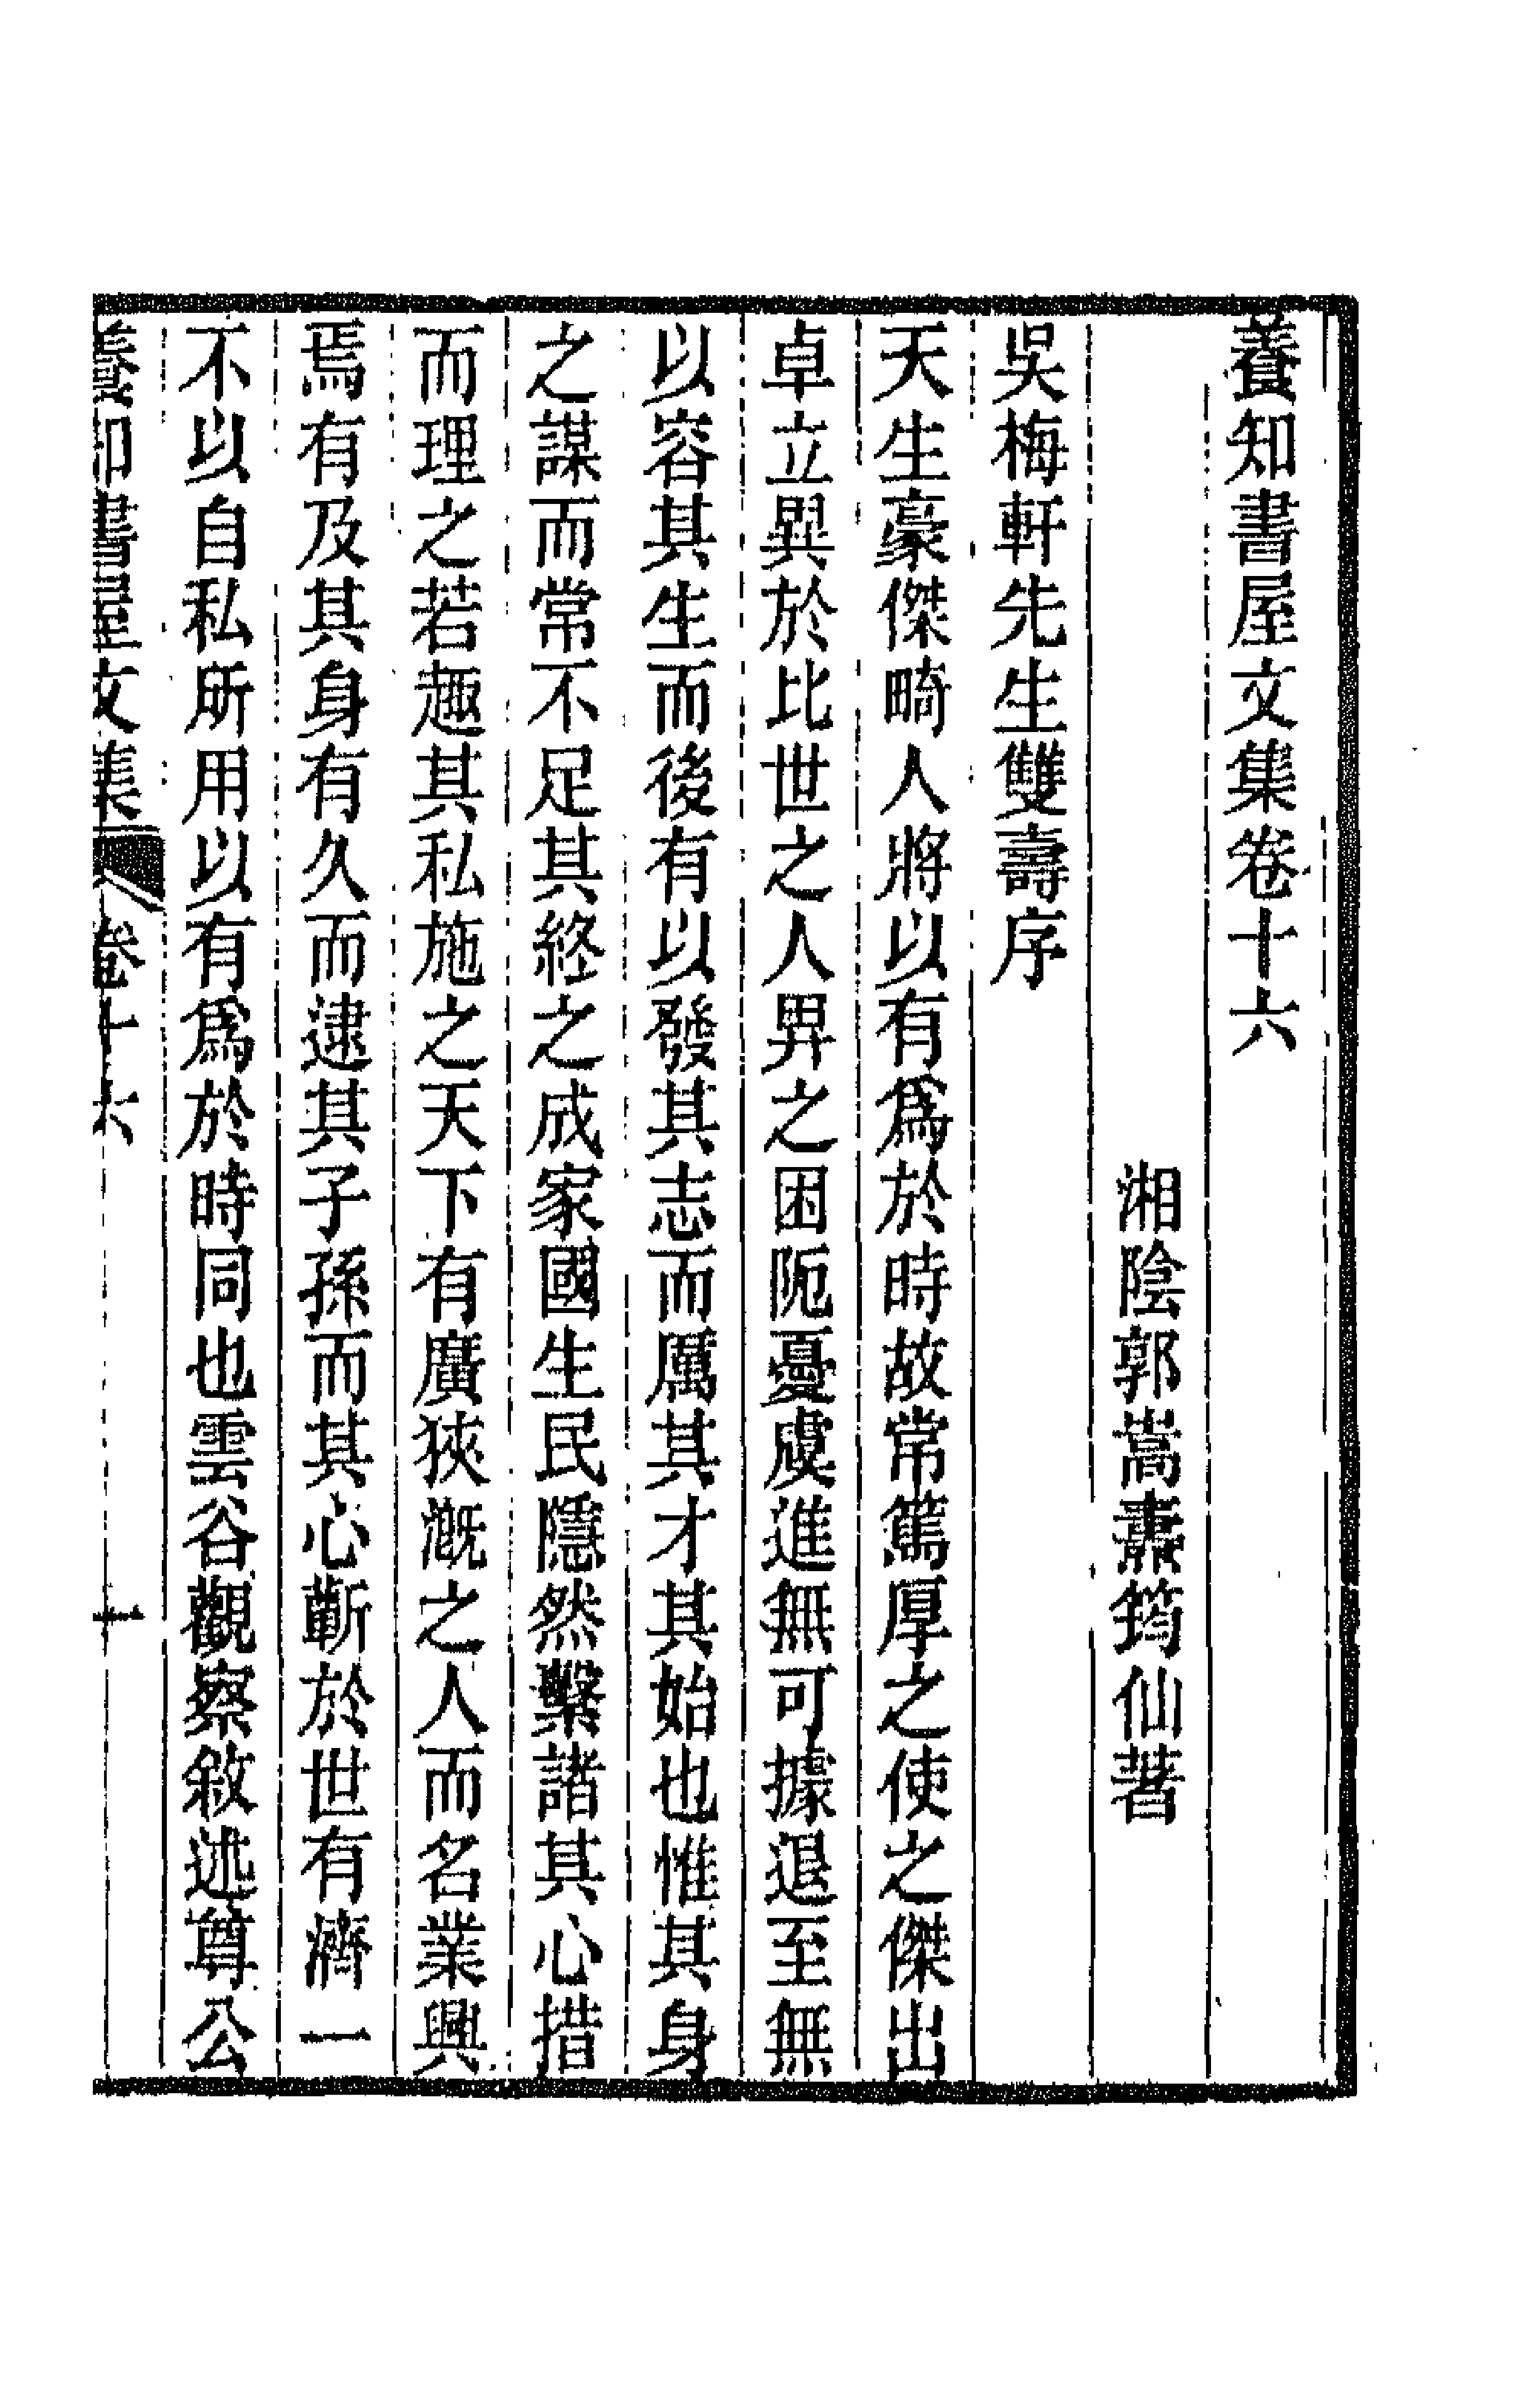 養知書屋文集卷十六
湘陰郭嵩燾筠仙著
吳梅軒先生雙壽序
天生豪傑畸人將以有爲於時故常篤厚之使之傑出
卓立異於比世之人畀之困阨憂虞進無可據退至無
以容其生而後有以發其志而厲其才其始也惟其身
之謀而常不足其終之成家國生民隱然繫諸其心措
而理之若趣其私施之天下有廣狹漑之人而名業興
焉有及其身有久而逮其子孫而其心蘄於世有濟一
不以自私所用以有爲於時同也雲谷觀察敘述尊公
養知書屋文集 卷十六 十一